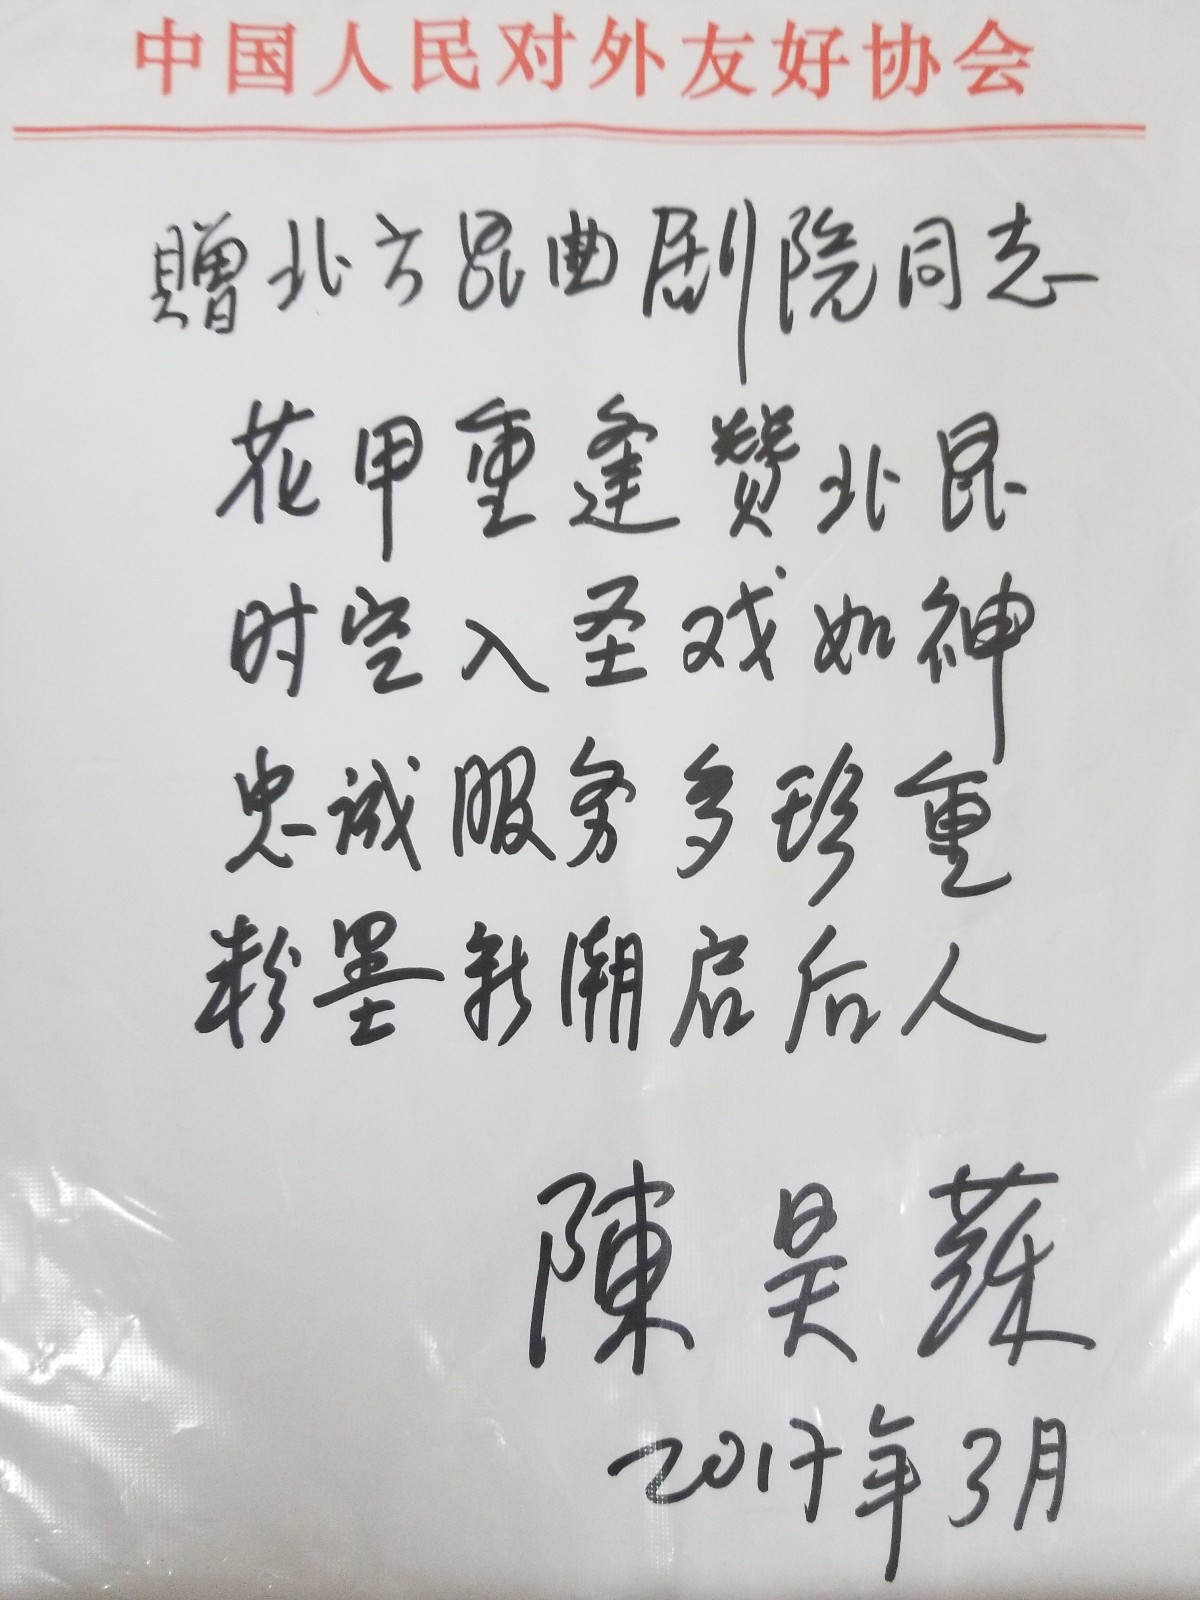 中国人民对外友好协会
赠北方昆曲剧院同志
花甲重逢赞北昆
时空入圣戏如神
忠诚服务多珍重
粉墨新潮启后人
陳昊蘇
2017年3月